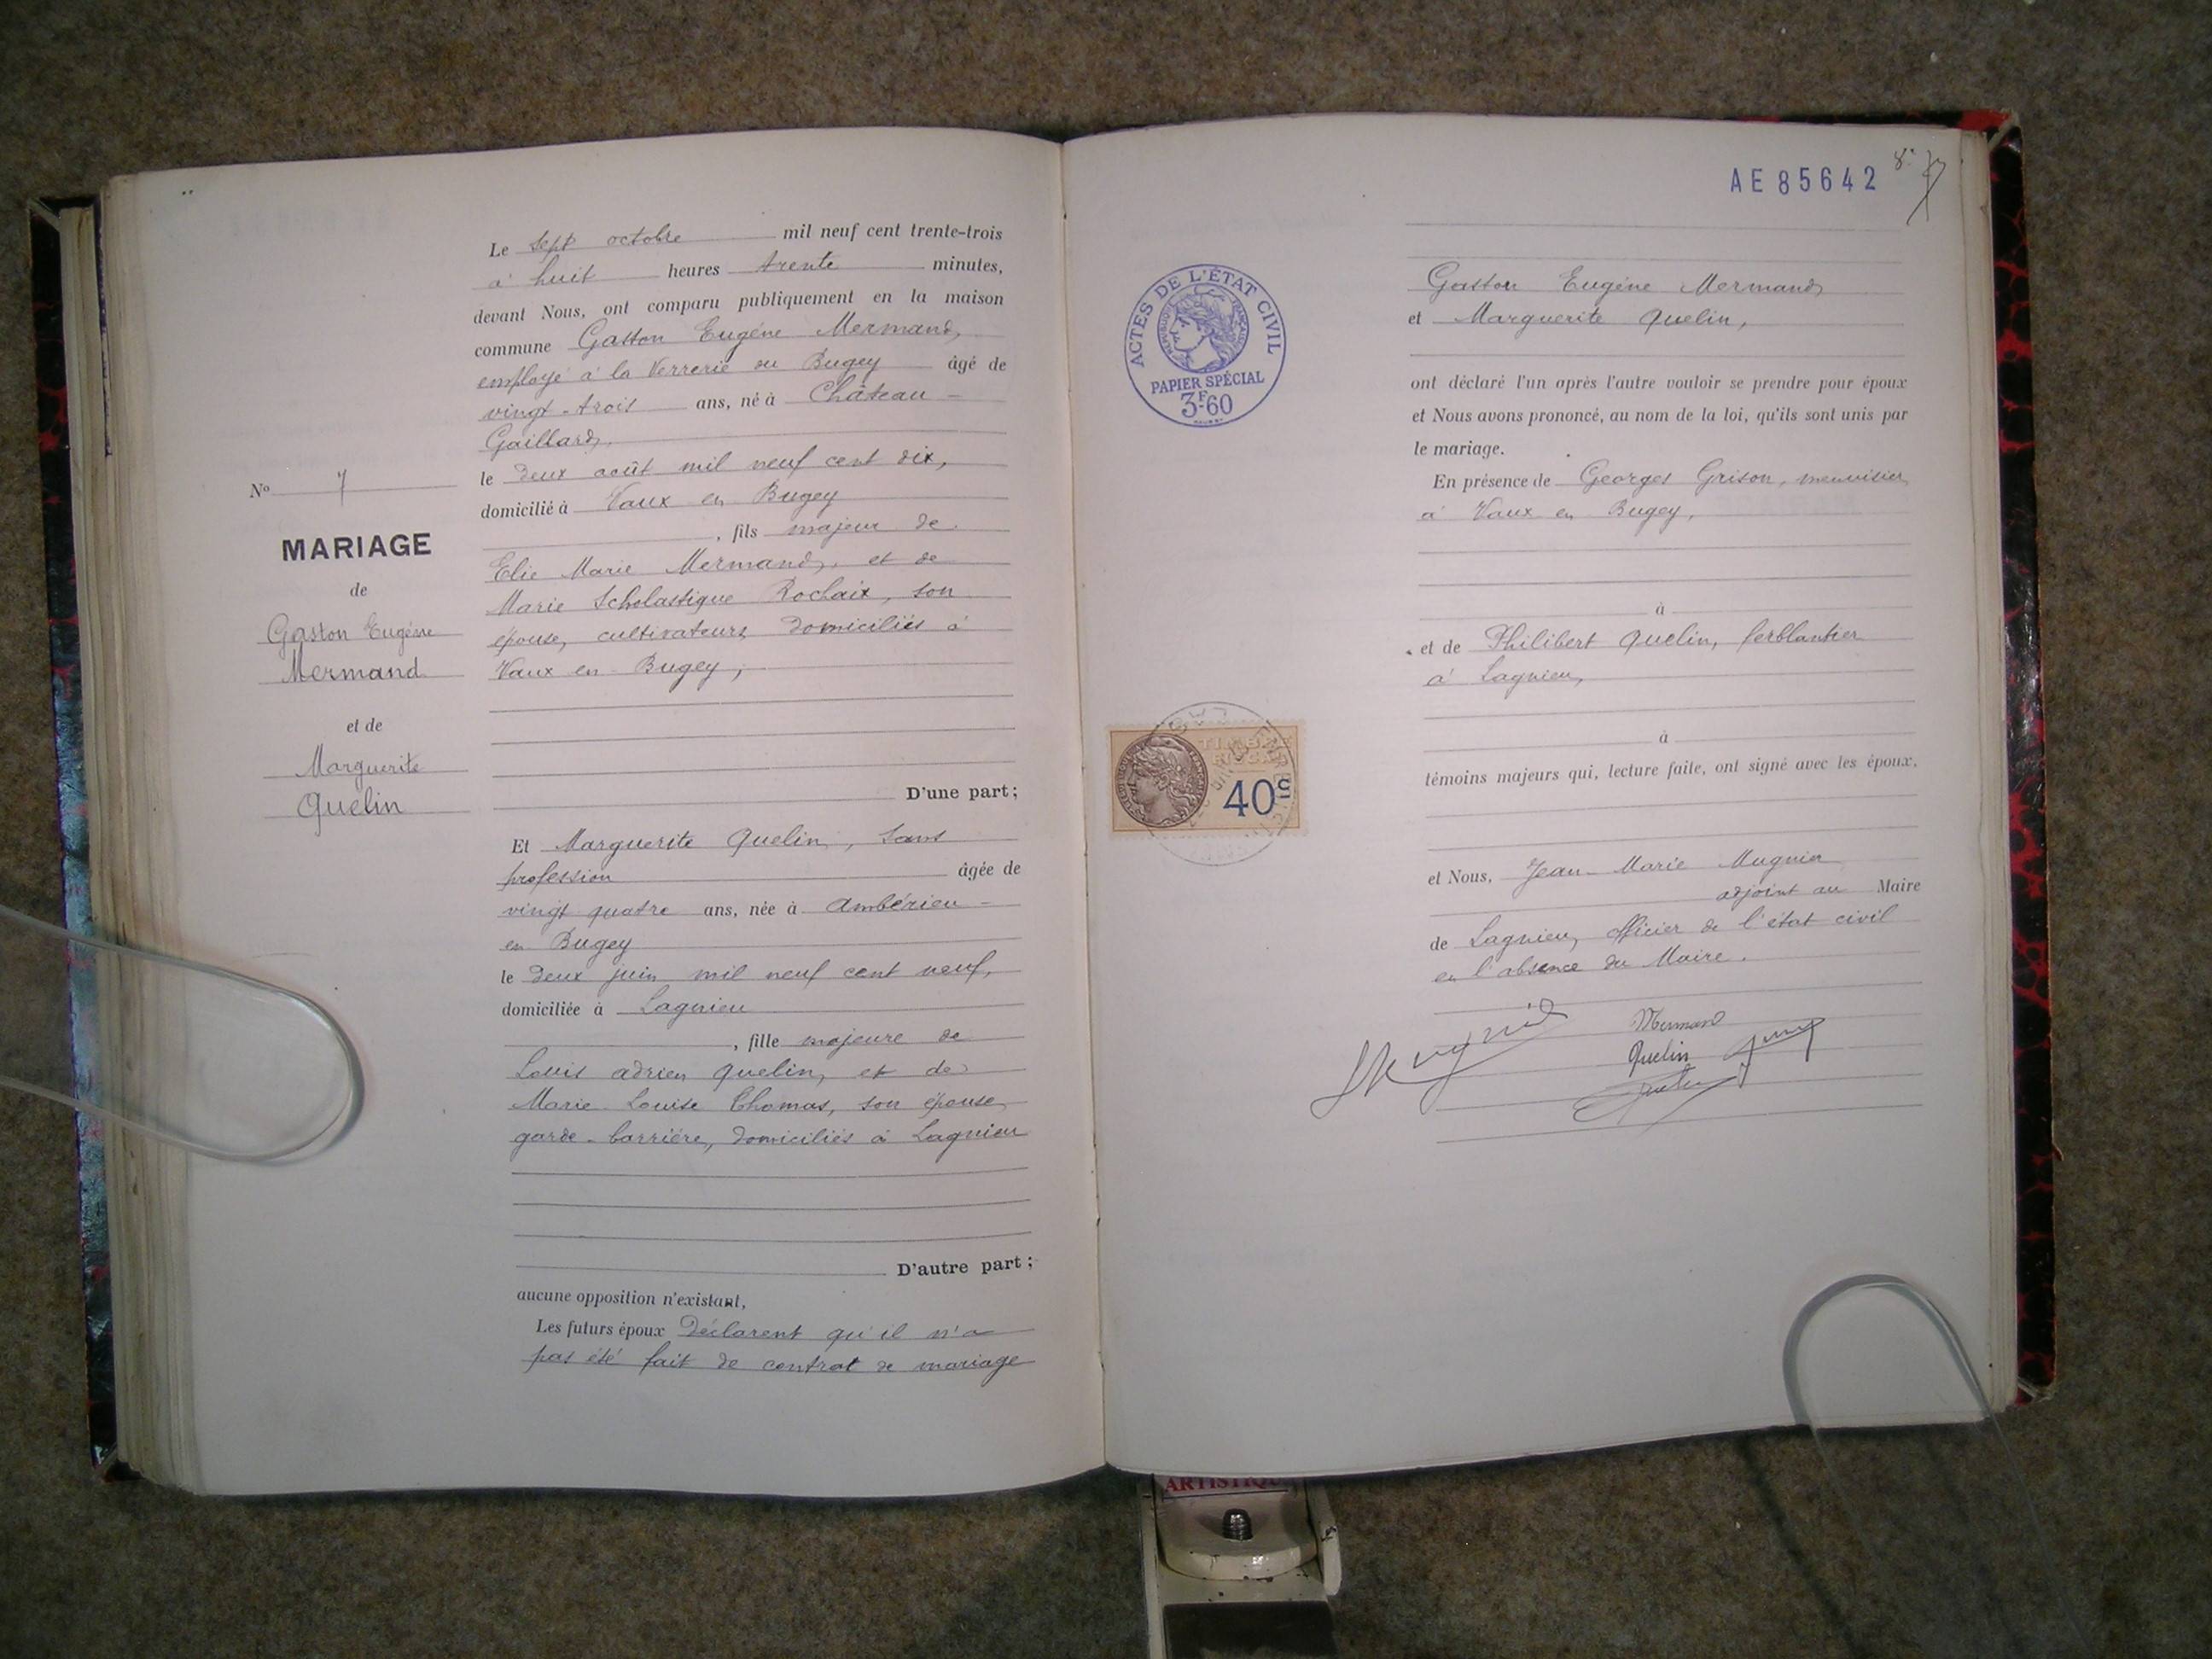 Le sept octobre mil neuf cent trente-trois
à huit heures trente minutes,
devant Nous, ont comparu publiquement en la maison
commune Gaston Eugène Mermand,
employé à la Verrerie du Bugey âgé de
vingt-trois ans, né à Château-
Gaillard,
le deux août mil neuf cent dix,
domicilié à Vaux en Bugey
, fils majeur de
Elie Marie Mermand, et de
Marie Scholastique Rochaix, son
épouse, cultivateurs domiciliés à
Vaux en Bugey,
D'une part;
Et Marguerite Quelin, sans
profession âgée de
vingt quatre ans, née à Ambérieu-
en Bugey
le deux juin mil neuf cent neuf,
domiciliée à Lagnieu
, fille majeure de
Louis adrien Quelin, et de
Marie Louise Thomas, son épouse,
garde-barrière, domiciliés à Lagnieu
D'autre part;
aucune opposition n'existant,
Les futurs époux Déclarent qu'il n'a
pas été fait de contrat de mariage
No 7
MARIAGE
de
Gaston Eugène
Mermand
et de
Marguerite
Quelin
AE 85642
8
ACTES DE L'ÉTAT CIVIL
RÉPUBLIQUE FRANÇAISE
PAPIER SPÉCIAL
3F-60
TIMBRE
FISCAL
40c
Gaston Eugène Mermand,
et Marguerite Quelin,
ont déclaré l'un après l'autre vouloir se prendre pour époux
et Nous avons prononcé, au nom de la loi, qu'ils sont unis par
le mariage.
En présence de Georges Grison, menuisier
à Vaux en Bugey,
à
et de Philibert Quelin, ferblantier
à Lagnieu,
à
témoins majeurs qui, lecture faite, ont signé avec les époux,
et Nous, Jean-Marie Mugnier
adjoint au Maire
de Lagnieu, officier de l'état civil
en l'absence du Maire.
Mugnier
Mermand
Quelin
Quelin
ARTISTIQUE